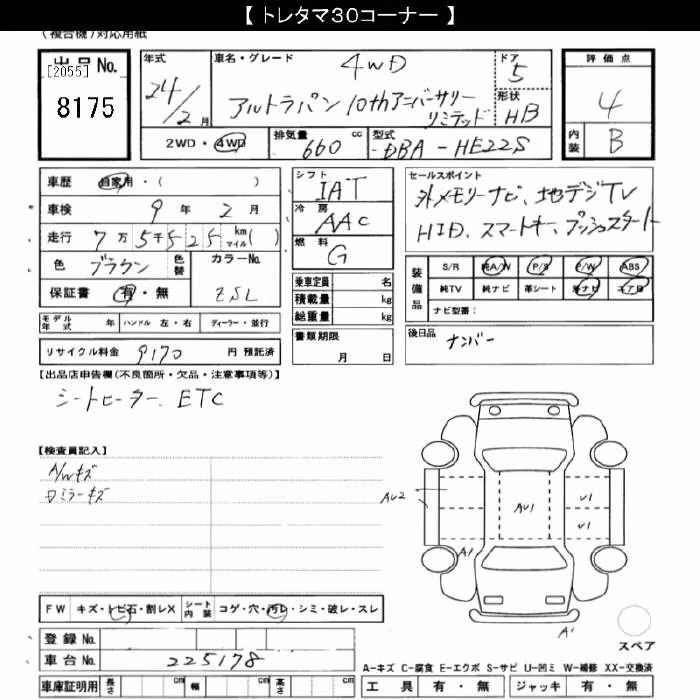 【 トレタマ３０コーナー 】
（複合機）対応用紙
出品 No.
[2055]
8175
年式
24/2月
車名・グレード
4WD
アルトラパン 10thアニバーサリー
リミテッド
ドア
5
形状
HB
2WD・4WD
排気量
660 cc
型式
DBA-HE22S
評価点
4
内装
B
車歴 自家用・（ ）
車検 9年 2月
走行 7万5千525 km マイル（ ）
色 ブラウン 色替
カラーNo.
ZSL
保証書 有・無
モデル年式 年 ハンドル 左・右 ディーラー・並行
リサイクル料金 9170 円 預託済
シフト
IAT
冷房
AAC
燃料
G
乗車定員 名
積載量 kg
総重量 kg
書類期限
月 日
セールスポイント
外メモリーナビ、地デジTV
HID、スマートキー、プッシュスタート
装備品
S/R 純A/W P/S P/W ABS
純TV 純ナビ 革シート 外ナビ エアB
ナビ型番：
後日品
ナンバー
【出品店申告欄（不良箇所・欠品・注意事項等）】
シートヒーター、ETC
【検査員記入】
A/Wキズ
ミラーキズ
FW キズ・トビ石・割レX シート内装 コゲ・穴・汚レ・シミ・破レ・スレ
登録 No.
車台 No. 225178
車庫証明用 長さ cm 幅 cm 高さ cm
AU2
AU1
U1
U1
A1
A1
スペア
A－キズ C－腐食 E－エクボ S－サビ U－凹ミ W－補修 XX－交換済
工具 有・無 ジャッキ 有・無